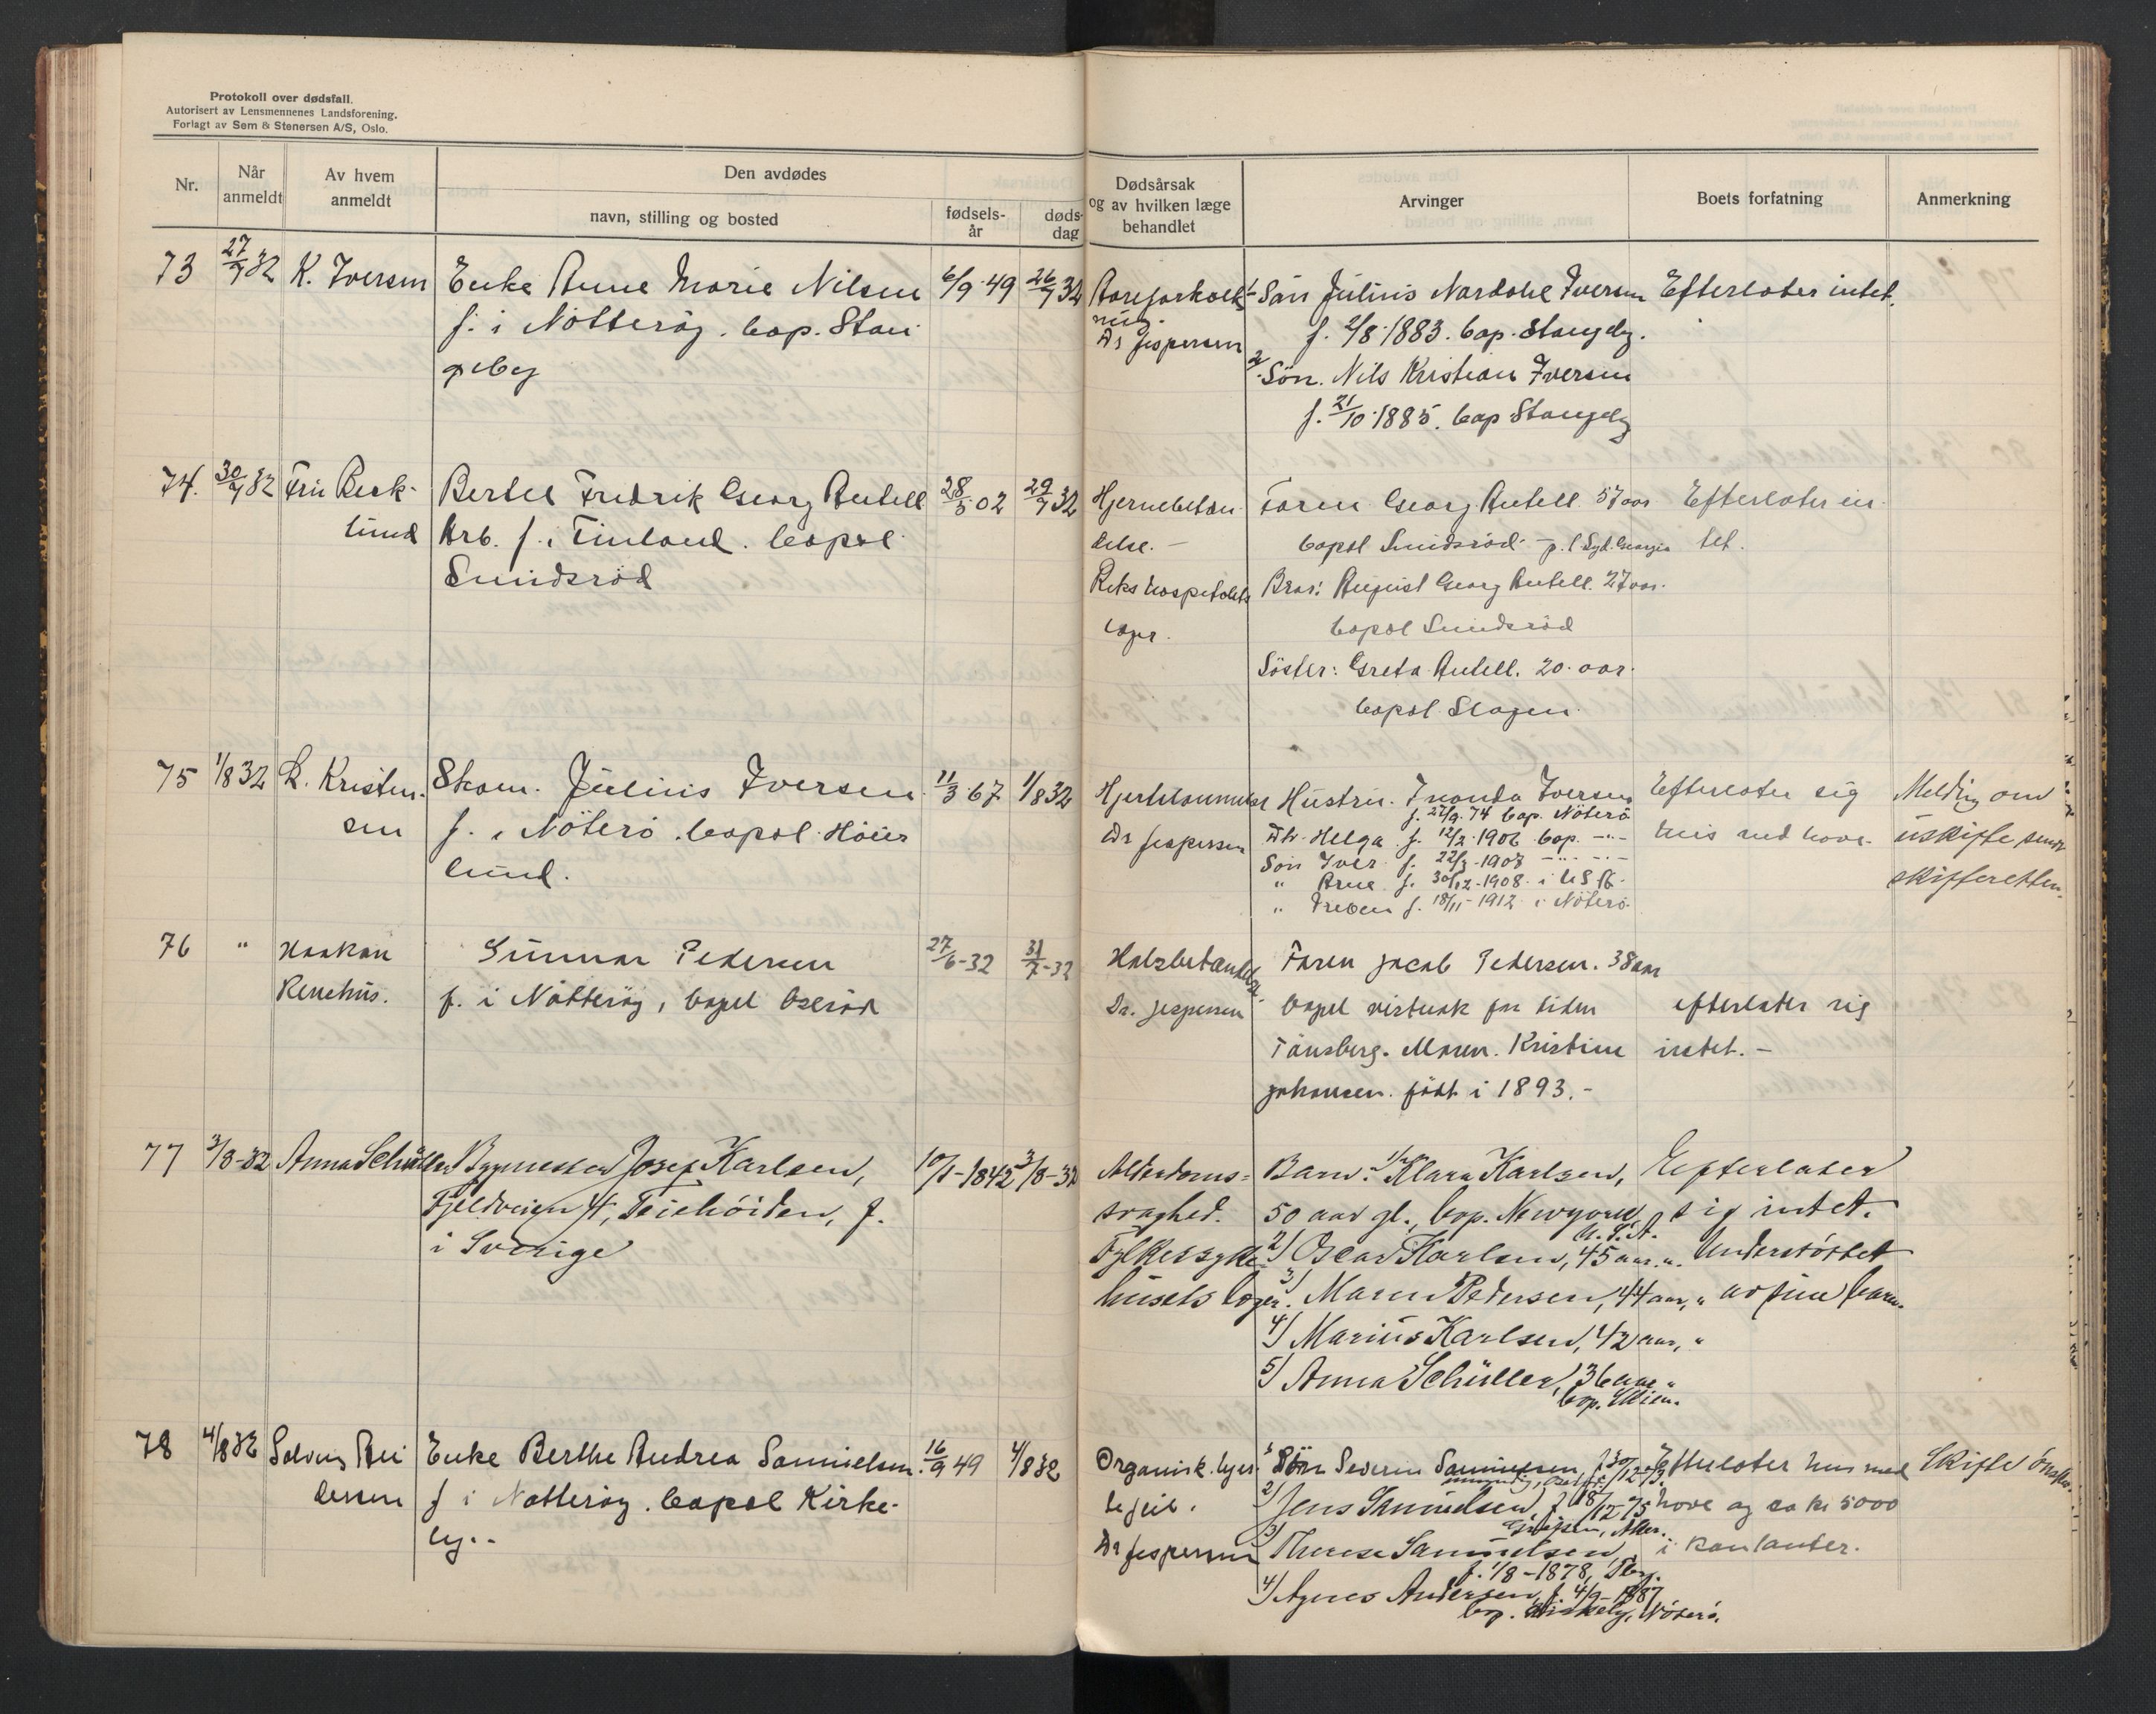 Protokoll over dødsfall.
Autorisert av Lensmennenes Landsforening.
Forlagt av Sem & Stenersen A/S, Oslo.
Nr.
Når anmeldt
Av hvem anmeldt
Den avdødes
navn, stilling og bosted
fødsels-
år
døds-
dag
Dødsårsak
og av hvilken læge
behandlet
Arvinger
Boets forfatning
Anmerkning
73 27/7 32 K. Iversen Enke Anne Marie Nilsen 6/9-49 26/7 32
f. i Nötteröy. bop. Stan
geby
Aareforkalk
ning.
Dr Jespersen
1 Sön Julius Nardahl Iversen
f. 2/8 1883. bop. Stangeby.
2 Sön. Nils Kristian Iversen
f. 21/10 1885. bop Stangeby
Efterlater intet.
74. 30/7 32 Fru Beck-
lund
Bertel Fredrik Georg Antell 28/5 02 29/7 32
Arb. f. i Finland. bopæl
Smidsröd
Hjernebetæn
delse. —
Rikshospitalets
læger.
Faren Georg Antell 57 aar
bopæl Smidsröd - p.t. Syd. Georgia
Bror: August Georg Antell. 27 aar.
bopæl Smidsröd
Söster: Greta Antell. 20. aar.
bopæl Slagen.
Efterlater in
tet.
75 1/8 32 L. Kristen-
sen
Skom. Julius Iversen 11/3 67 1/8 32
f. i Nöterö. bopæl Höies
lund.
Hjertelammelse
Dr Jespersen
Hustru. Iranda Iversen
f. 27/9 74 bop. Nöterö
Dtr. Helga f. 12/2 1906 bop. -"-
Sön Iver f. 22/3-1907 -"- -"-
" Arne f. 30/12-1908 i U S A.
" Preben f. 18/11-1912 i Nöterö
Efterlater sig
hus med have.
Melding om
uskifte sendt
skifteretten.
76 " Haakon
Renehus.
Gunnar Pedersen 27/6-32 31/7-32
f. i Nötteröy, bopæl Oseröd
Halsbetændelse.
Dr. Jespersen
Faren Jacob Pedersen. 38 aar
bopæl for tiden
Tönsberg. Moren. Kristine
Johansen. född i 1893. -
efterlater sig
intet. -
77 3/8-32 Anna Schüller Byggmester Josef Karlsen, 10/1-1842 3/8-32
Fjeldveien 4, Teiehöiden, f.
i Sverige
Alderdoms=
svaghed.
Fylkessyke
husets læger.
Barn: 1/ Klara Karlsen,
50 aar gl., bop. Newyork
U.S.A.
2) Oscar Karlsen, 45 aar. ".
3) Maren Pedersen, 44 aar, "
4) Marius Karlsen, 42 aar, "
5) Anna Schüller, 36 aar "
bop. Skien.
Efterlater
sig intet.
Understöttet
av sine barn.
78 4/8 32 Solveig An
dersen
Enke Berthe Andrea Samuelsen. 16/9 49 4/8 32
f i Nötteröy. bopæl Kirke-
by..
Organisk hjer
tefeil.
Dr Jespersen
1 Sön Severin Samuelsen, f 30/12-73.
2) Jens Samuelsen, f 18/12-75
Aker.
3) Therese Samuelsen,
f. 1/8-1878, Tbg.
4) Agnes Andersen, f. 4/9-1887
bop. Kirkeby, Nöterö.
Efterlater hus med
have og ca kr 5000
i kontanter.
Skifte önskes.